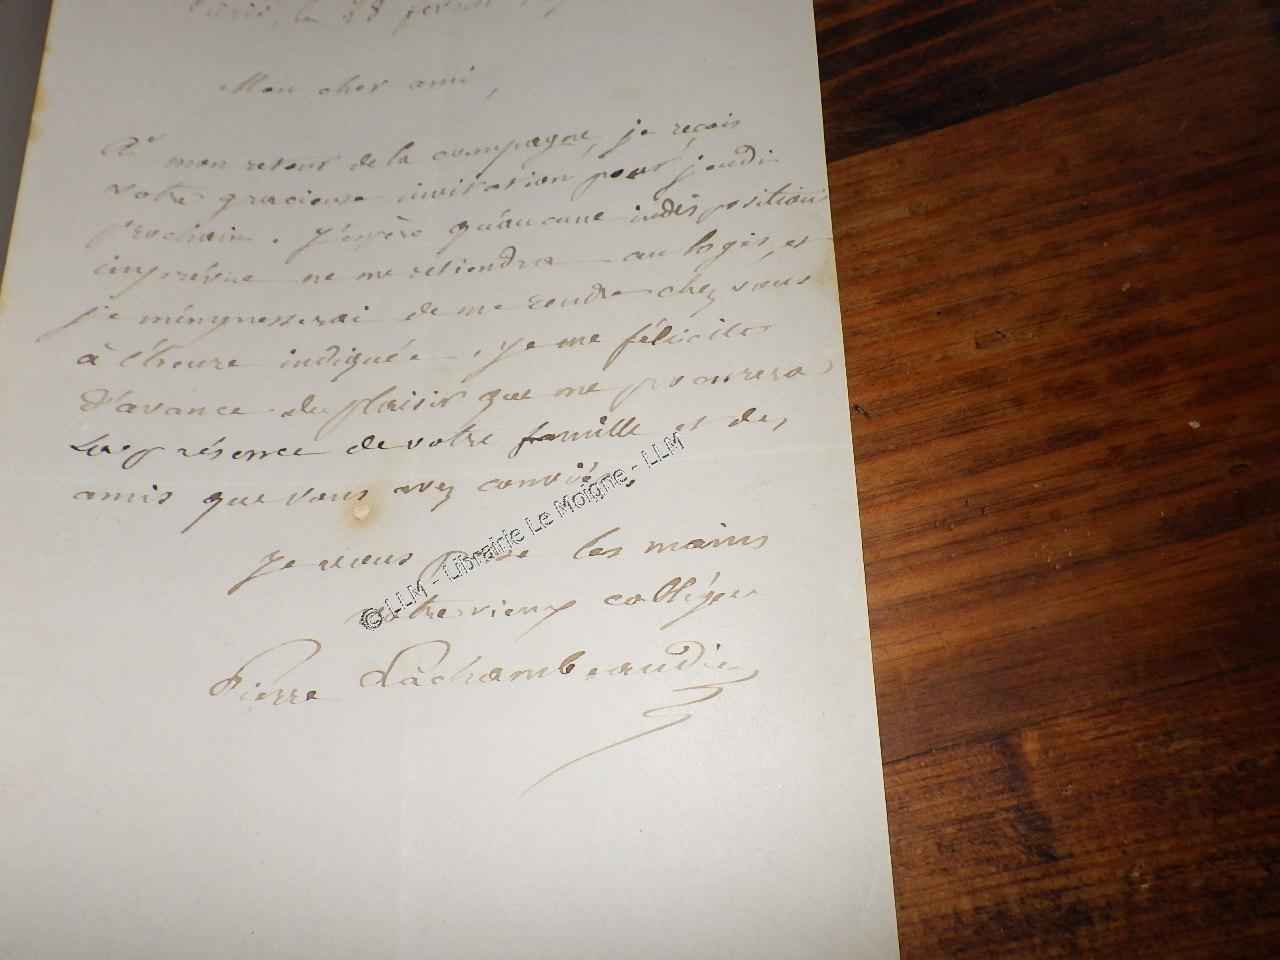 Paris, le 28 février
Mon cher ami,
A mon retour de la campagne, je reçois
votre gracieuse invitation pour jeudi
prochain. J'espère qu'aucune indisposition
imprévue ne me retiendra au logis, et
je m'empresserai de me rendre chez vous
à l'heure indiquée. Je me félicite
d'avance du plaisir que me procurera
la présence de votre famille et des
amis que vous avez conviés.
Je vous presse les mains
votre vieux collègue
Pierre Lachambeaudie
© LLM - Librairie Le Moigne - LLM